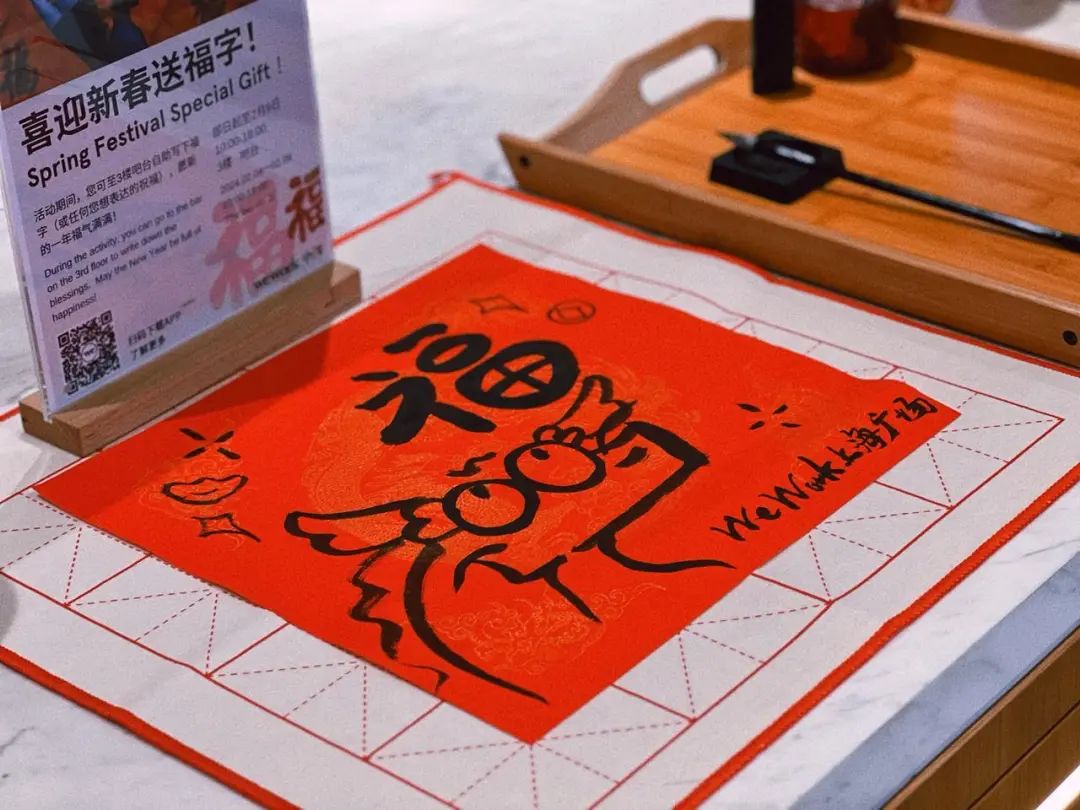 喜迎新春送福字!
Spring Festival Special Gift !
活动期间，您可至3楼吧台自助写下福
字（或任何您想表达的祝福），愿新
的一年福气满满!
During the activity, you can go to the bar
on the 3rd floor to write down the
blessings. May the New Year be full of
happiness!
即日起至2月9日
10:00-18:00
3楼 吧台
福
福
扫码下载APP
了解更多
福
WeWork上海广场